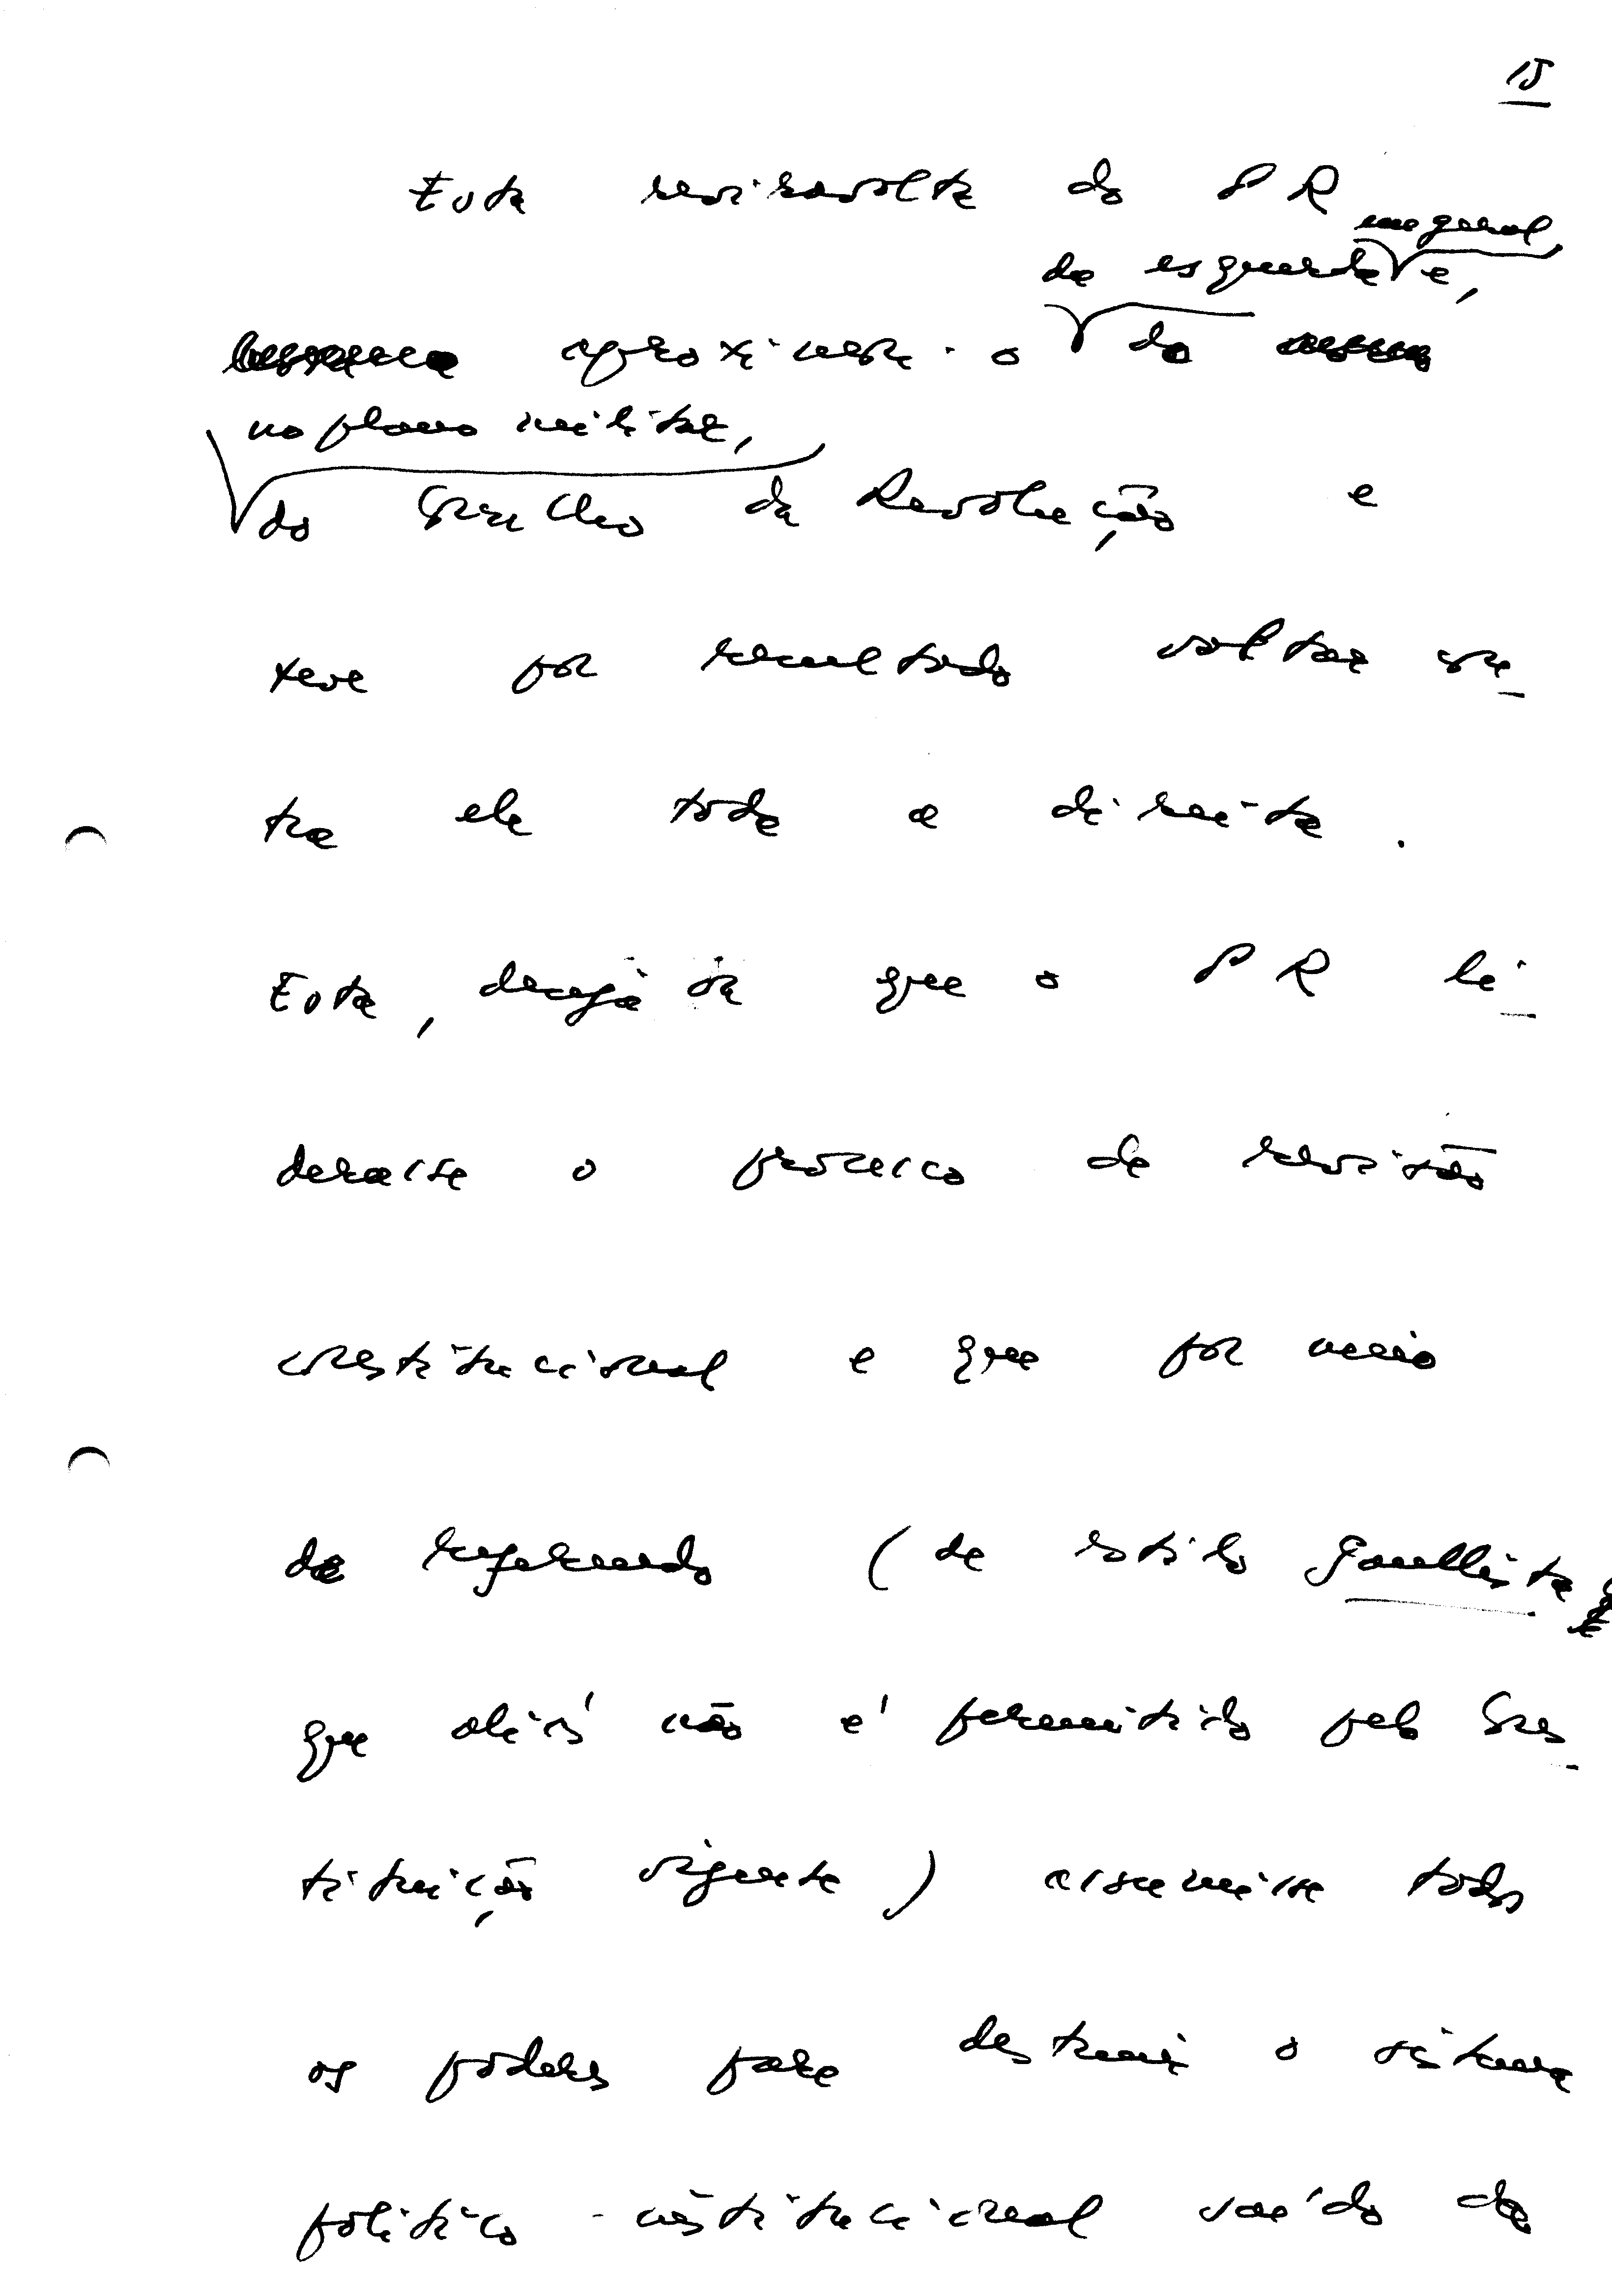 15
Esta reviravolta do PR
em geral,
da esquerda e,
aproximou-o da
no plano militar,
do Conselho da Revolução e
teve por resultado voltar con-
tra ele toda a direita.
Esta, desejava que o PR li-
derasse o processo de revisão
constitucional e que por meio
de referendo (de estilo gaullista
que aliás não é permitido pela Cons-
tituição vigente) assumisse todos
os poderes para destruir o sistema
político-institucional saído da